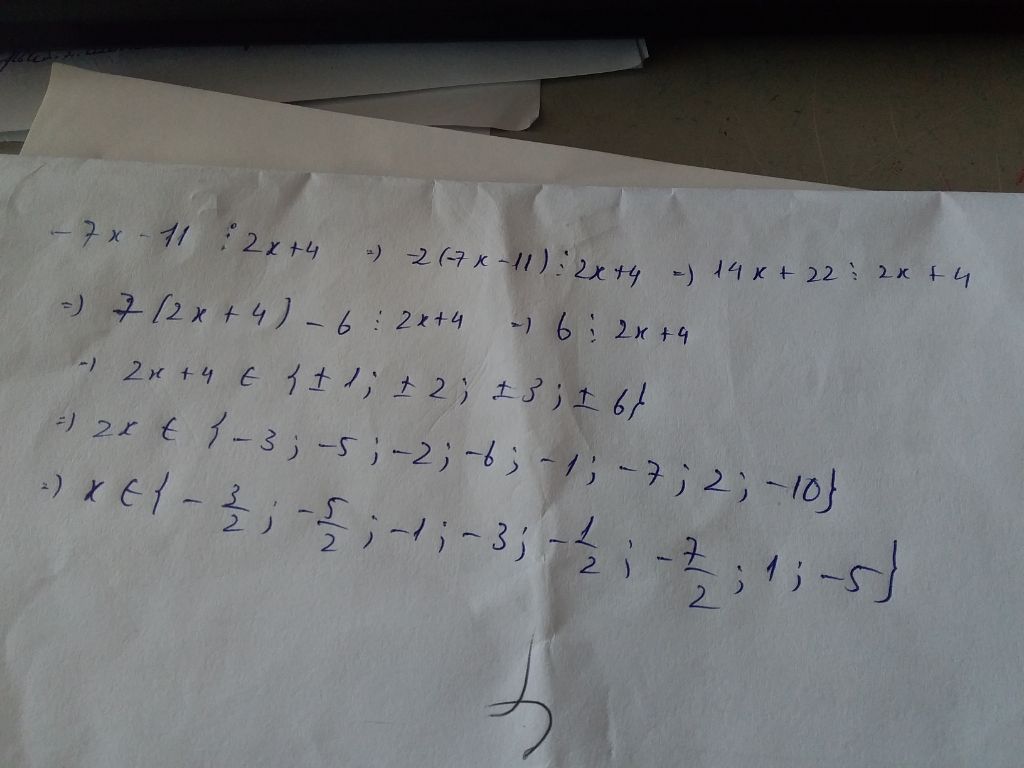 -7x - 11 ⋮ 2x+4 => -2(-7x-11) ⋮ 2x+4 => 14x + 22 ⋮ 2x + 4
=> 7(2x + 4) - 6 ⋮ 2x+4 => 6 ⋮ 2x +4
=> 2x +4 ∈ {±1; ±2; ±3; ±6}
=> 2x ∈ {-3; -5; -2; -6; -1; -7; 2; -10}
=> x ∈ {-3/2; -5/2; -1; -3; -1/2; -7/2; 1; -5}